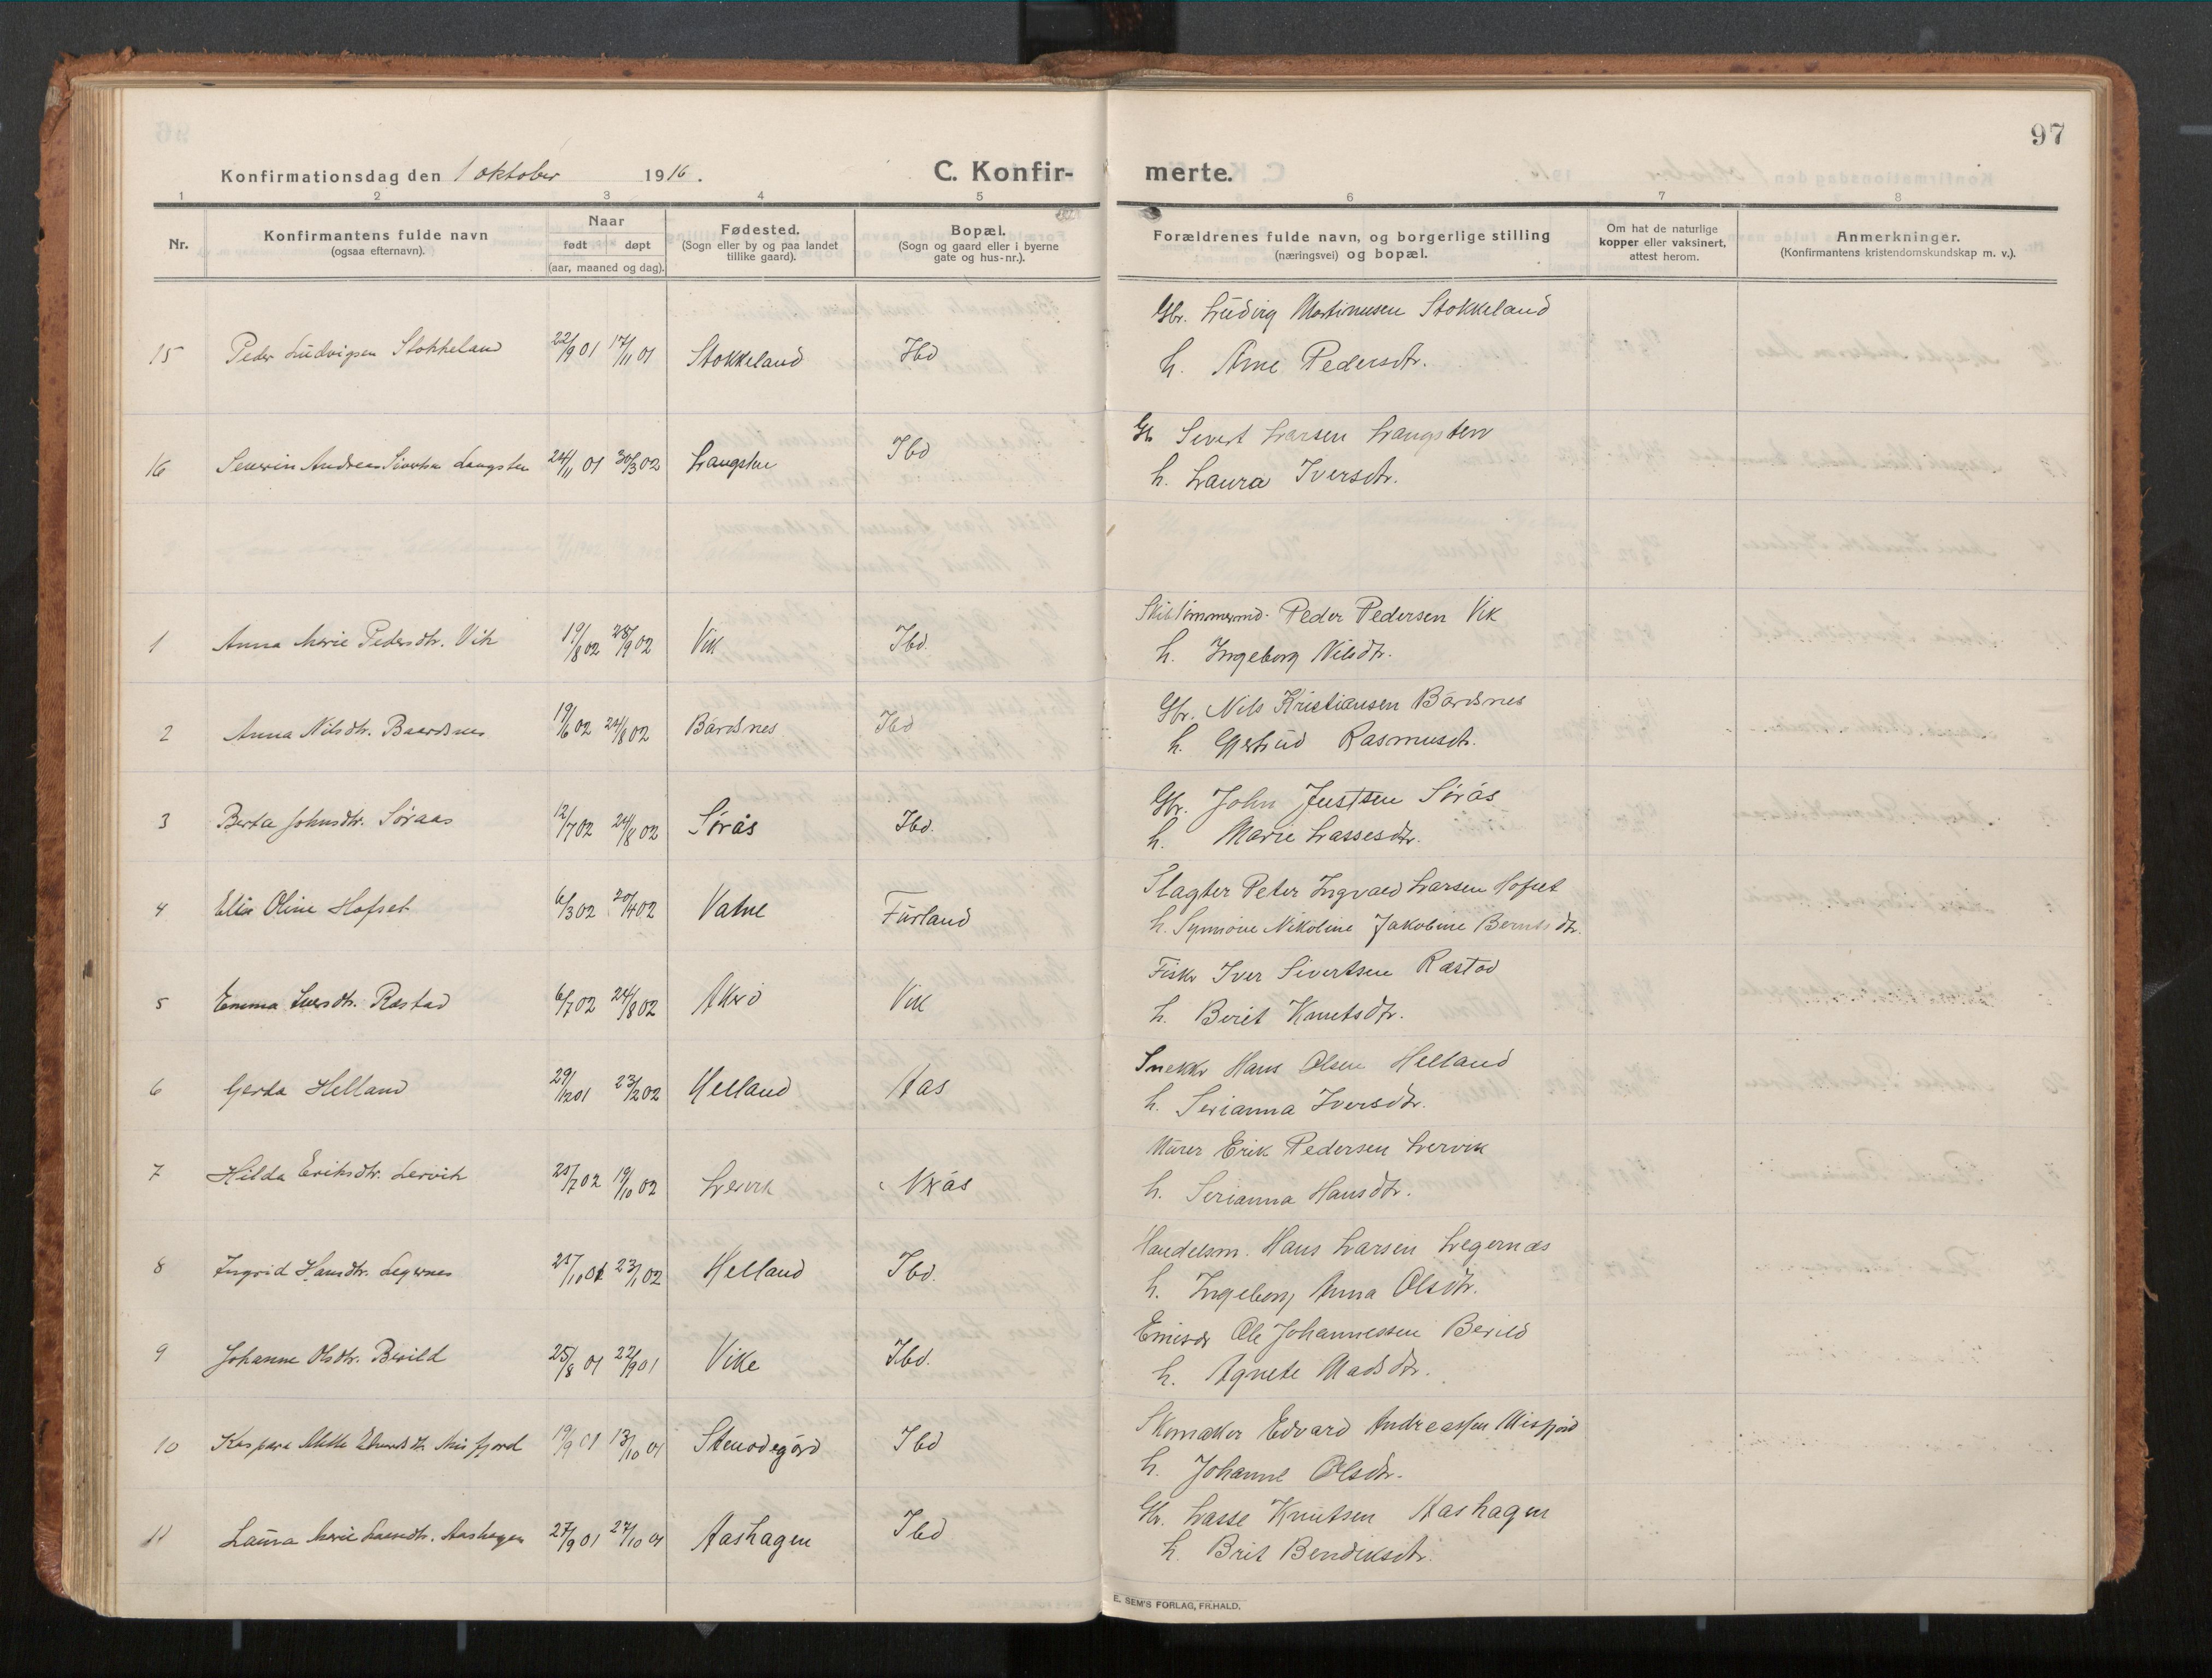 97
Konfirmationsdag den 1 oktober 1916.
C. Konfir-merte.
1 2 3 4 5 6 7 8
Nr.
Konfirmantens fulde navn
(ogsaa efternavn).
Naar
født døpt
(aar, maaned og dag).
Fødested.
(Sogn eller by og paa landet
tillike gaard).
Bopæl.
(Sogn og gaard eller i byerne
gate og hus-nr.).
Forældrenes fulde navn, og borgerlige stilling
(næringsvei) og bopæl.
Om hat de naturlige
kopper eller vaksinert,
attest herom.
Anmerkninger.
(Konfirmantens kristendomskundskap m. v.).
15 Peder Ludvigsen Stokkeland 22/9 01 17/11 01 Stokkeland Ibd Gbr. Ludvig Martinusen Stokkeland
h. Arne Pedersdtr.
16 Severin Andreas Sivertsen Langsten 24/11 01 30/3 02 Langsten Ibd Gb Sivert Larsen Langsten
h. Laura Iversdtr.
1 Anna Marie Pedersdtr. Vik 19/8 02 28/9 02 Vik Ibd. Skibstømmermd. Peder Pedersen Vik
h. Ingeborg Nilsdtr.
2 Anna Nilsdtr. Baardsnes 19/6 02 24/8 02 Bårdsnes Ibd Gbr. Nils Kristiansen Bårdsnes
h. Gjertrud Rasmusdtr.
3 Berta Johnsdtr. Søraas 12/7 02 24/8 02 Sørås Ibd. Gbr. John Justsen Sørås
h. Marie Lassesdtr.
4 Ella Oline Hofset 6/3 02 20/4 02 Vatne Furland Slagter Peter Ingvald Larsen Hofset
h. Synnøve Nikoline Jakobine Berntsdtr.
5 Emma Iversdtr. Ræstad 6/7 02 24/8 02 Akerø Vik Fisker Iver Sivertsen Ræstad
h. Berit Knutsdtr.
6 Gerda Helland 29/12 01 23/2 02 Helland Aas Snekker Hans Olsen Helland
h. Serianna Iversdtr.
7 Hilda Eriksdtr. Lervik 20/7 02 19/10 02 Lervik Nxås Murer Erik Pedersen Lervik
h. Serianna Hansdtr.
8 Ingrid Hansdtr. Legernes 25/10 01 23/1 02 Helland Ibd. Handelsm. Hans Larsen Legernæs
h. Ingeborg Anna Olsdtr.
9 Johanne Olsdtr. Berild 25/8 01 22/9 01 Vike Ibd. Emisær Ole Johannessen Berild
h. Agnete Madsdtr.
10 Kaspara Mette Edvardsdtr Misfjord 19/9 01 13/10 01 Stenødegård Ibd Skomaker Edvard Andreassen Misfjord
h. Johanne Olsdtr.
11 Laura Marie Lassesdtr. Aashagen 27/9 01 27/10 01 Aashagen Ibd Gbr. Lasse Knutsen Aashagen
h. Brit Bendiksdtr.
E. SEM'S FORLAG, FR.HALD.